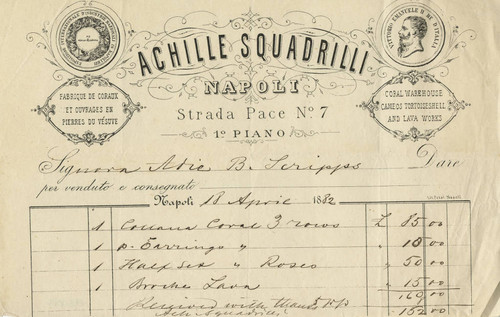 ACHILLE SQUADRILLI
NAPOLI
Strada Pace Nº 7
1º PIANO
VITTORIO EMANUELE II RE D'ITALIA
FABRIQUE DE CORAUX
ET OUVRAGES EN
PIERRES DU VÉSUVE
CORAL WAREHOUSE
CAMEOS TORTOISESHELL
AND LAVA WORKS
Signora Adie B. Scripps Dare
per venduto e consegnato
Napoli 18 April 1882
1 Collana Coral 3 rows £ 85.00
1 p. Earrings " " 10.00
1 Half Set " Roses " 50.00
1 Broche Lava " 15.00
160.00
Received with thanks 5
Ach. Squadrilli 152.00